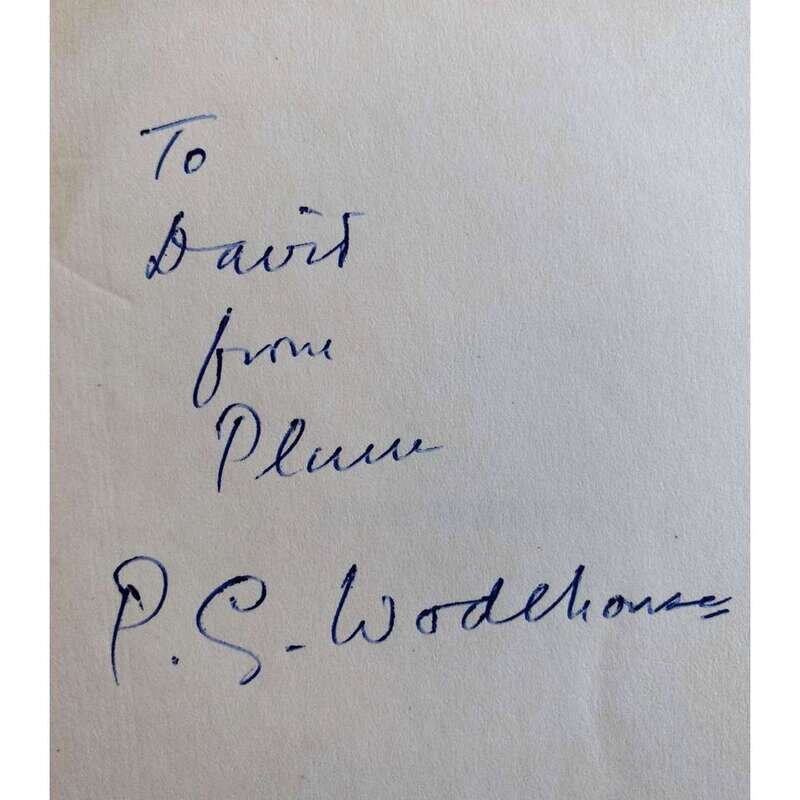 To
David
from
Plum
P. G. Wodehouse